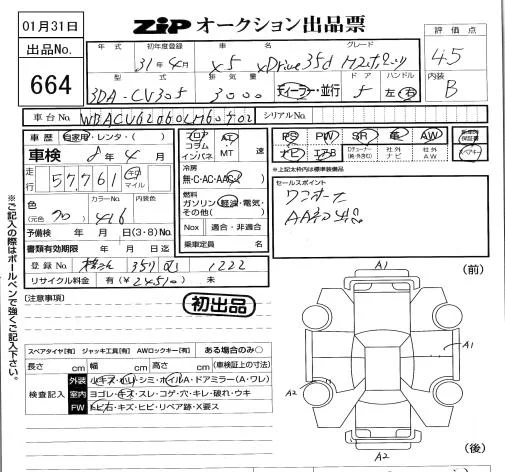 01月31日
ZIP オークション出品票
評価点
4.5
出品No.
664
年式 初年度登録 車名 グレード
31年4月 X5 xDrive35d Mスポーツ
内装
B
型式 排気量 ドア ハンドル
3DA-CV30S 3000 ディーラー・並行 5 左 右
車台No. シリアルNo.
車歴 自家用・レンタ・( )
車検 8年4月
走行 57,761 キロ マイル
フロア コラム インパネ AT MT 速
冷房
無・C・AC・AAC
燃料
ガソリン・軽油・電気・その他( )
Nox 適合・非適合
乗車定員 名
PS PW SR 革 AW
ナビ エアB DTチューナー(純・外含む) 社外ナビ 社外AW
新車時保証書
スペアキー
※上記太枠内は標準装備品
セールスポイント
ワンオーナー
色 (元色) クロ カラーNo. 416 内装色
予備検 年 月 日(3・8)No.
書類有効期限 年 月 日迄
登録No. 357 1222
リサイクル料金 有(¥ ) 未
※ご記入の際はボールペンで強くご記入下さい。
(注意事項)
初出品
スペアタイヤ[有] ジャッキ工具[有] AWロックキー[有] ある場合のみ〇
長さ cm 幅 cm 高さ cm (車検証上の寸法)
検査記入
外装 小キズ・小凹・シミ・ホイルA・ドアミラー(A・ワレ)
室内 ヨゴレ・キズ・スレ・コゲ・穴・キレ・破れ・ウキ
FW トビ石・キズ・ヒビ・リペア跡・X要ス
A1
(前)
A1
A2
A2
(後)